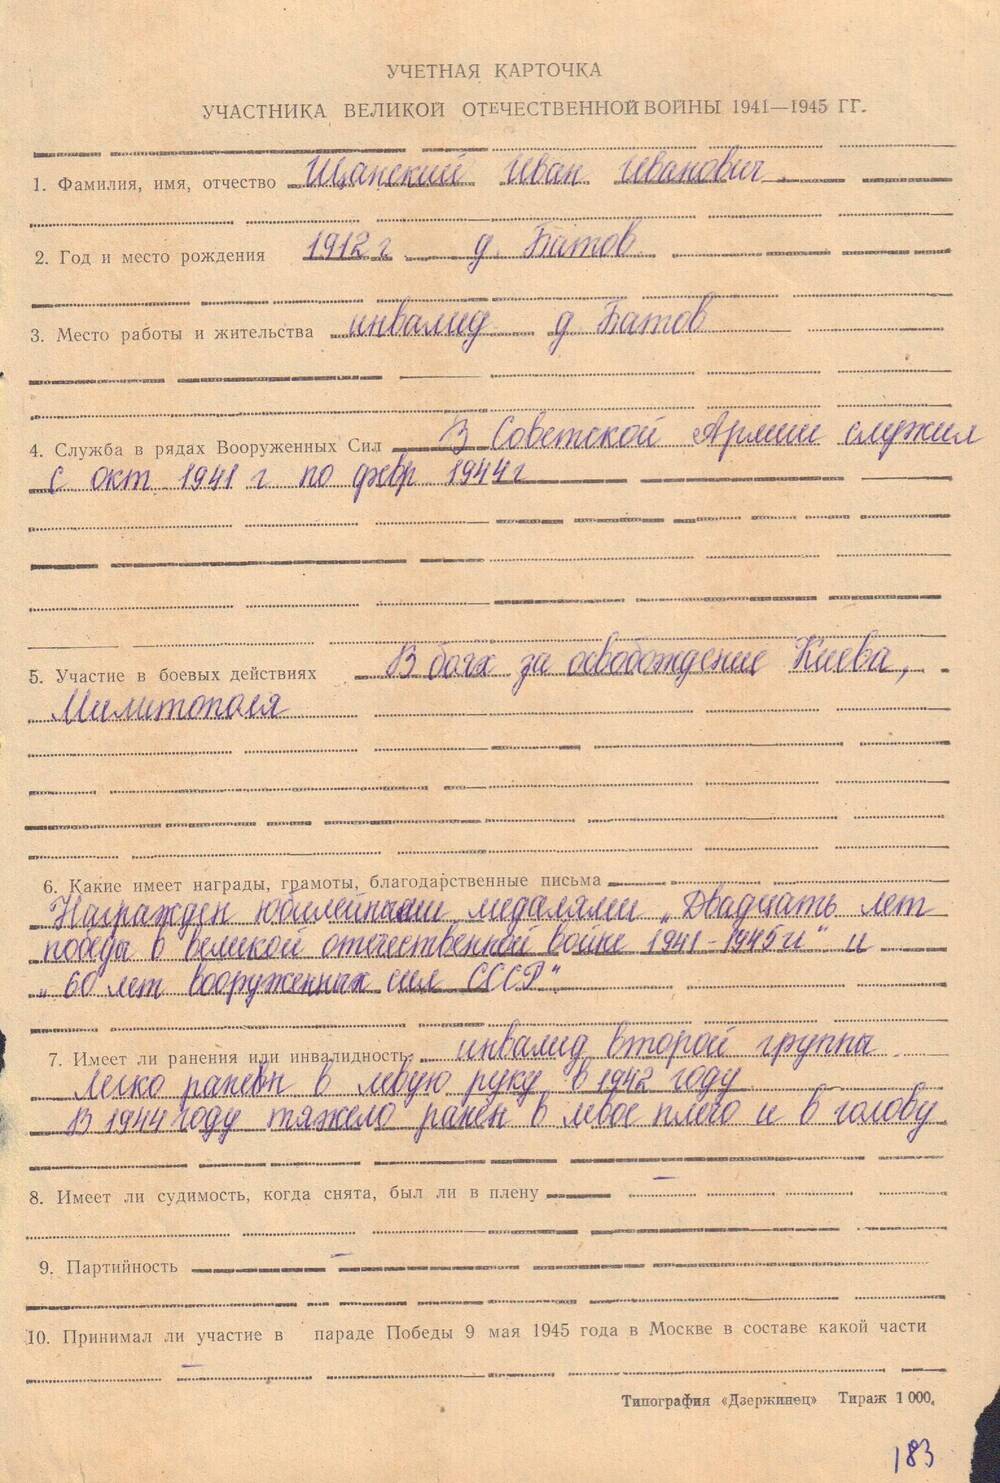 УЧЕТНАЯ КАРТОЧКА
УЧАСТНИКА ВЕЛИКОЙ ОТЕЧЕСТВЕННОЙ ВОЙНЫ 1941—1945 ГГ.
1. Фамилия, имя, отчество Щанский Иван Иванович
2. Год и место рождения 1912 г. д. Батов
3. Место работы и жительства инвалид д Батов
4. Служба в рядах Вооруженных Сил В Советской Армии служил
с окт 1941 г по февр 1944 г
5. Участие в боевых действиях В боях за освобождение Киева,
Милитополя
6. Какие имеет награды, грамоты, благодарственные письма
Награжден юбилейными медалями „Двадцать лет
победы в великой отечественной войне 1941-1945 гг" и
„60 лет вооруженных сил СССР".
7. Имеет ли ранения или инвалидность инвалид второй группы
Легко ранен в левую руку в 1942 году
В 1944 году тяжело ранен в левое плечо и в голову
8. Имеет ли судимость, когда снята, был ли в плену —
9. Партийность —
10. Принимал ли участие в параде Победы 9 мая 1945 года в Москве в составе какой части
—
Типография «Дзержинец» Тираж 1 000.
183